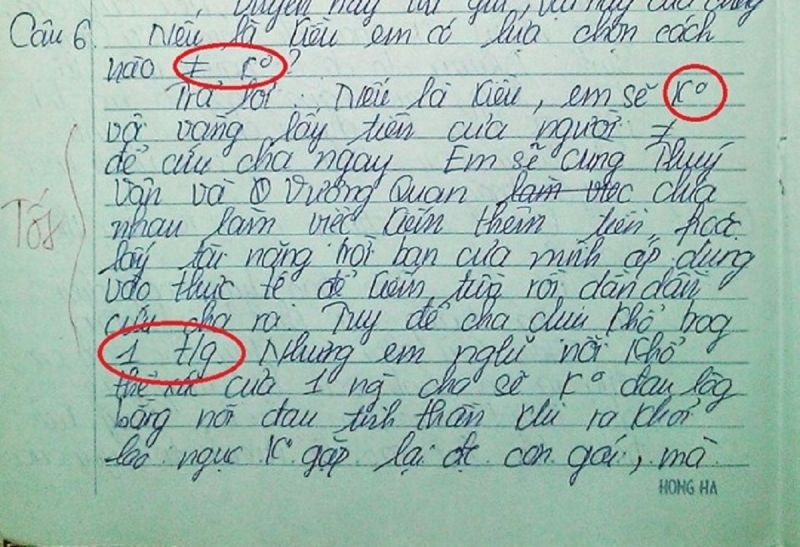 truyện này tác giả, vai này của chúng
Câu 6. Nếu là Kiều em có lựa chọn cách
nào ≠ K°?
Trả lời: Nếu là Kiều, em sẽ K°
vội vàng lấy tiền của người ≠
để cứu cha ngay Em sẽ cùng Thuý
Vân và Vương Quan làm việc chia
nhau làm việc kiếm thêm tiền, hoặc
lấy tài năng trời ban của mình áp dụng
vào thực tế để kiếm tiền rồi dần dần
cứu cha ra. Tuy để cha chịu khổ trog
1 t/g Nhưng em nghĩ nỗi khổ
thể xác của 1 ng cha sẽ K° đau lòg
bằng nỗi đau tinh thần khi ra khỏi
lao ngục K° gặp lại đc con gái, mà
Tốt
HONG HA